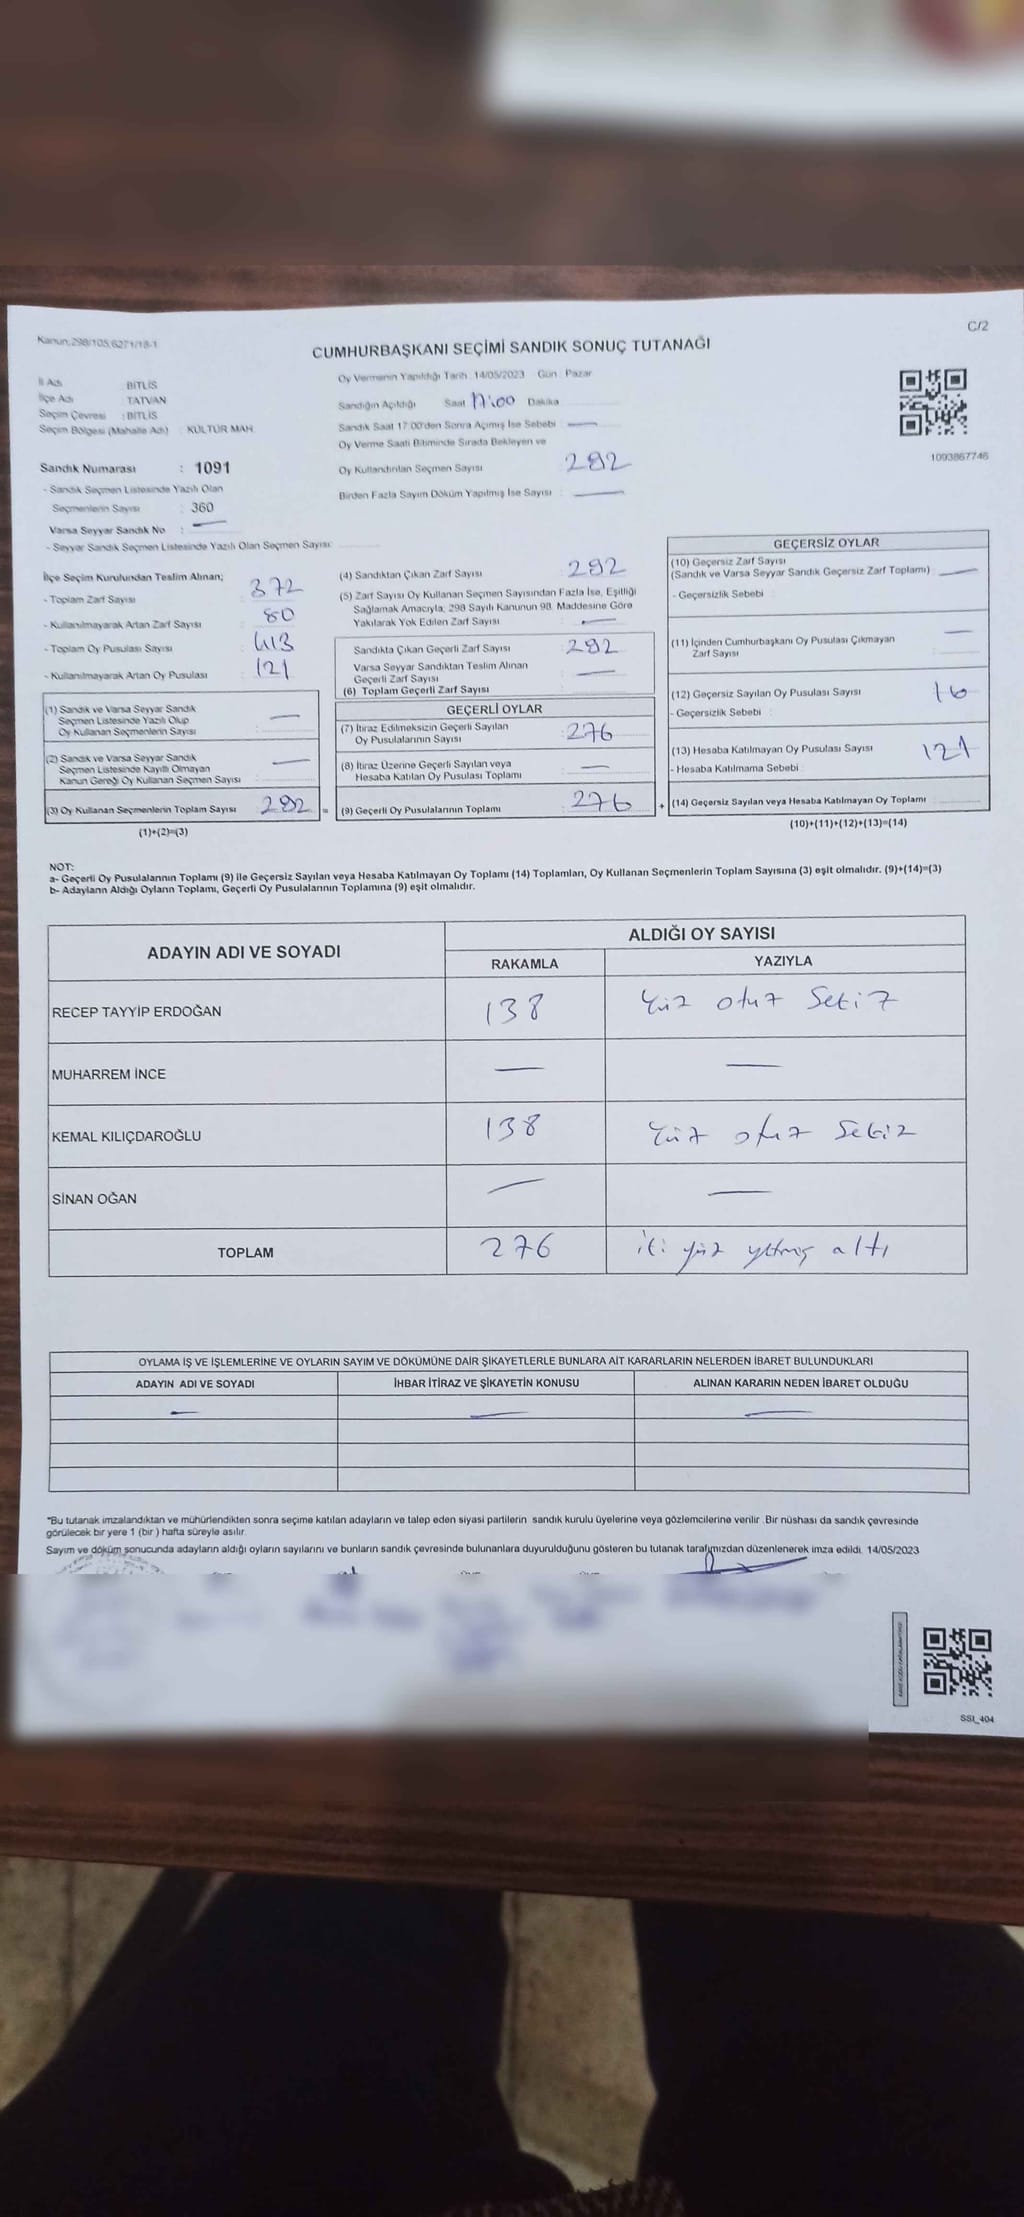 Kanun:298/105,6271/18-1
C/2
CUMHURBAŞKANI SEÇİMİ SANDIK SONUÇ TUTANAĞI
İl Adı : BİTLİS
İlçe Adı : TATVAN
Seçim Çevresi : BİTLİS
Seçim Bölgesi (Mahalle Adı) : KÜLTÜR MAH.
Sandık Numarası : 1091
- Sandık Seçmen Listesinde Yazılı Olan
Seçmenlerin Sayısı : 360
Varsa Seyyar Sandık No : —
- Seyyar Sandık Seçmen Listesinde Yazılı Olan Seçmen Sayısı:
Oy Vermenin Yapıldığı Tarih : 14/05/2023 Gün : Pazar
Sandığın Açıldığı Saat 17:00 Dakika
Sandık Saat 17:00'den Sonra Açımış İse Sebebi : —
Oy Verme Saati Bitiminde Sırada Bekleyen ve
Oy Kullandırılan Seçmen Sayısı 292
Birden Fazla Sayım Döküm Yapılmış İse Sayısı : —
1093867746
İlçe Seçim Kurulundan Teslim Alınan;
- Toplam Zarf Sayısı 372
- Kullanılmayarak Artan Zarf Sayısı : 80
- Toplam Oy Pusulası Sayısı : 413
- Kullanılmayarak Artan Oy Pusulası : 121
(1) Sandık ve Varsa Seyyar Sandık
Seçmen Listesinde Yazılı Olup
Oy Kullanan Seçmenlerin Sayısı : —
(2) Sandık ve Varsa Seyyar Sandık
Seçmen Listesinde Kayıtlı Olmayan
Kanun Gereği Oy Kullanan Seçmen Sayısı : —
(3) Oy Kullanan Seçmenlerin Toplam Sayısı : 292 =
(1)+(2)=(3)
(4) Sandıktan Çıkan Zarf Sayısı : 292
(5) Zarf Sayısı Oy Kullanan Seçmen Sayısından Fazla İse, Eşitliği
Sağlamak Amacıyla, 298 Sayılı Kanunun 98. Maddesine Göre
Yakılarak Yok Edilen Zarf Sayısı : —
Sandıkta Çıkan Geçerli Zarf Sayısı : 292
Varsa Seyyar Sandıktan Teslim Alınan
Geçerli Zarf Sayısı : —
(6) Toplam Geçerli Zarf Sayısı :
GEÇERLİ OYLAR
(7) İtiraz Edilmeksizin Geçerli Sayılan
Oy Pusulalarının Sayısı : 276
(8) İtiraz Üzerine Geçerli Sayılan veya
Hesaba Katılan Oy Pusulası Toplamı : —
(9) Geçerli Oy Pusulalarının Toplamı : 276 +
GEÇERSİZ OYLAR
(10) Geçersiz Zarf Sayısı
(Sandık ve Varsa Seyyar Sandık Geçersiz Zarf Toplamı) : —
- Geçersizlik Sebebi :
(11) İçinden Cumhurbaşkanı Oy Pusulası Çıkmayan
Zarf Sayısı : —
(12) Geçersiz Sayılan Oy Pusulası Sayısı 16
- Geçersizlik Sebebi :
(13) Hesaba Katılmayan Oy Pusulası Sayısı 121
- Hesaba Katılmama Sebebi :
(14) Geçersiz Sayılan veya Hesaba Katılmayan Oy Toplamı :
(10)+(11)+(12)+(13)=(14)
NOT:
a- Geçerli Oy Pusulalarının Toplamı (9) ile Geçersiz Sayılan veya Hesaba Katılmayan Oy Toplamı (14) Toplamları, Oy Kullanan Seçmenlerin Toplam Sayısına (3) eşit olmalıdır. (9)+(14)=(3)
b- Adayların Aldığı Oyların Toplamı, Geçerli Oy Pusulalarının Toplamına (9) eşit olmalıdır.
ADAYIN ADI VE SOYADI ALDIĞI OY SAYISI
RAKAMLA YAZIYLA
RECEP TAYYİP ERDOĞAN 138 Yüz otuz Sekiz
MUHARREM İNCE — —
KEMAL KILIÇDAROĞLU 138 Yüz otuz Sekiz
SİNAN OĞAN — —
TOPLAM 276 iki yüz yetmiş altı
OYLAMA İŞ VE İŞLEMLERİNE VE OYLARIN SAYIM VE DÖKÜMÜNE DAİR ŞİKAYETLERLE BUNLARA AİT KARARLARIN NELERDEN İBARET BULUNDUKLARI
ADAYIN ADI VE SOYADI İHBAR İTİRAZ VE ŞİKAYETİN KONUSU ALINAN KARARIN NEDEN İBARET OLDUĞU
— — —
"Bu tutanak imzalandıktan ve mühürlendikten sonra seçime katılan adayların ve talep eden siyasi partilerin sandık kurulu üyelerine veya gözlemcilerine verilir. Bir nüshası da sandık çevresinde
görülecek bir yere 1 (bir) hafta süreyle asılır.
Sayım ve döküm sonucunda adayların aldığı oyların sayılarını ve bunların sandık çevresinde bulunanlara duyurulduğunu gösteren bu tutanak tarafımızdan düzenlenerek imza edildi. 14/05/2023
SSI_404